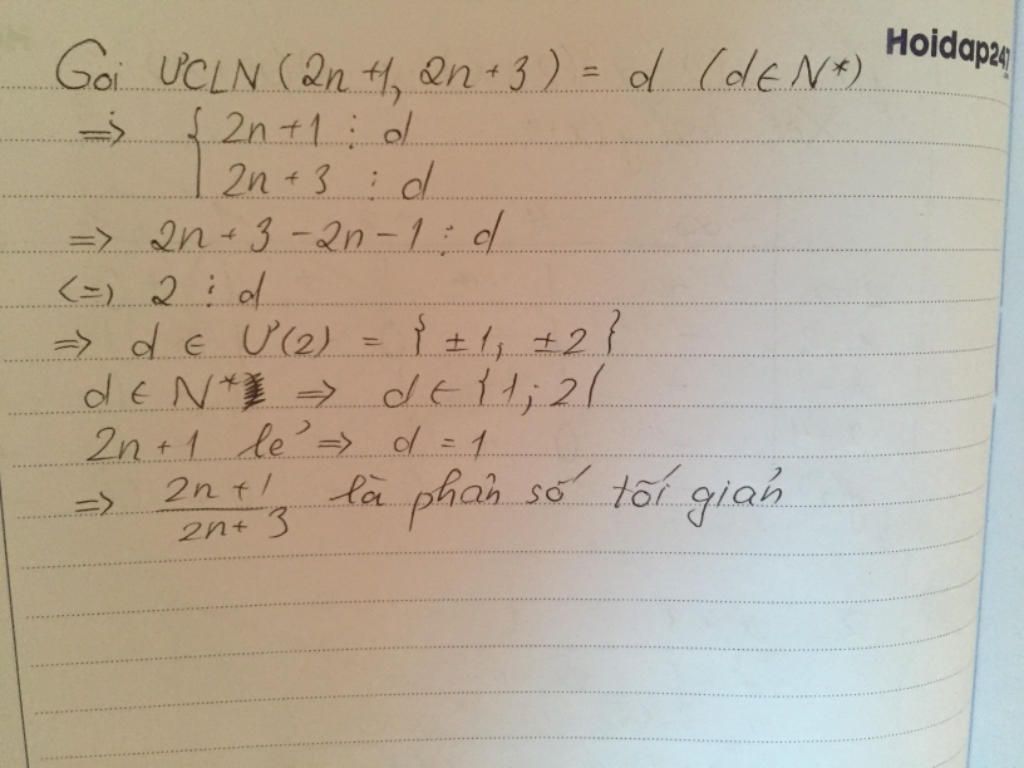 Hoidap247
Gọi ƯCLN (2n+1, 2n+3) = d (d∈N*)
=> { 2n+1 ⋮ d
2n+3 ⋮ d
=> 2n+3-2n-1 ⋮ d
<=> 2 ⋮ d
=> d ∈ Ư(2) = {±1, ±2}
d ∈ N* => d ∈ {1; 2{
2n+1 lẻ => d = 1
=> \frac{2n+1}{2n+3} là phân số tối giản